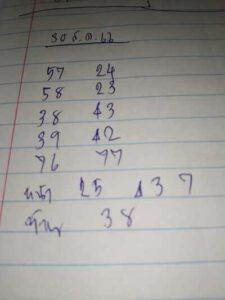 30 ธ.ค. 62
57 24
58 23
38 43
39 42
76 77
หน้า 25 43 7
38